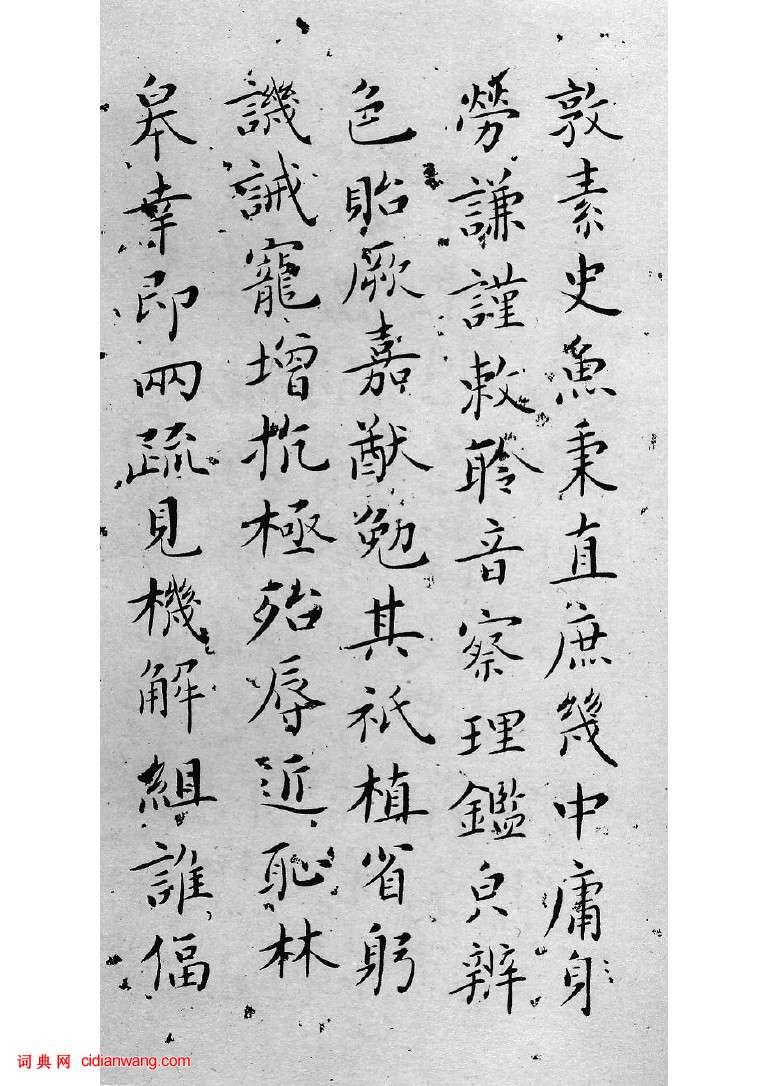 敦素史魚秉直庶幾中庸身
勞謙謹敕聆音察理鑑皃辨
色貽厥嘉猷勉其祇植省躬
譏誡寵增抗極殆辱近恥林
皋幸即兩疏見機解組誰偪
词典网 cidianwang.com